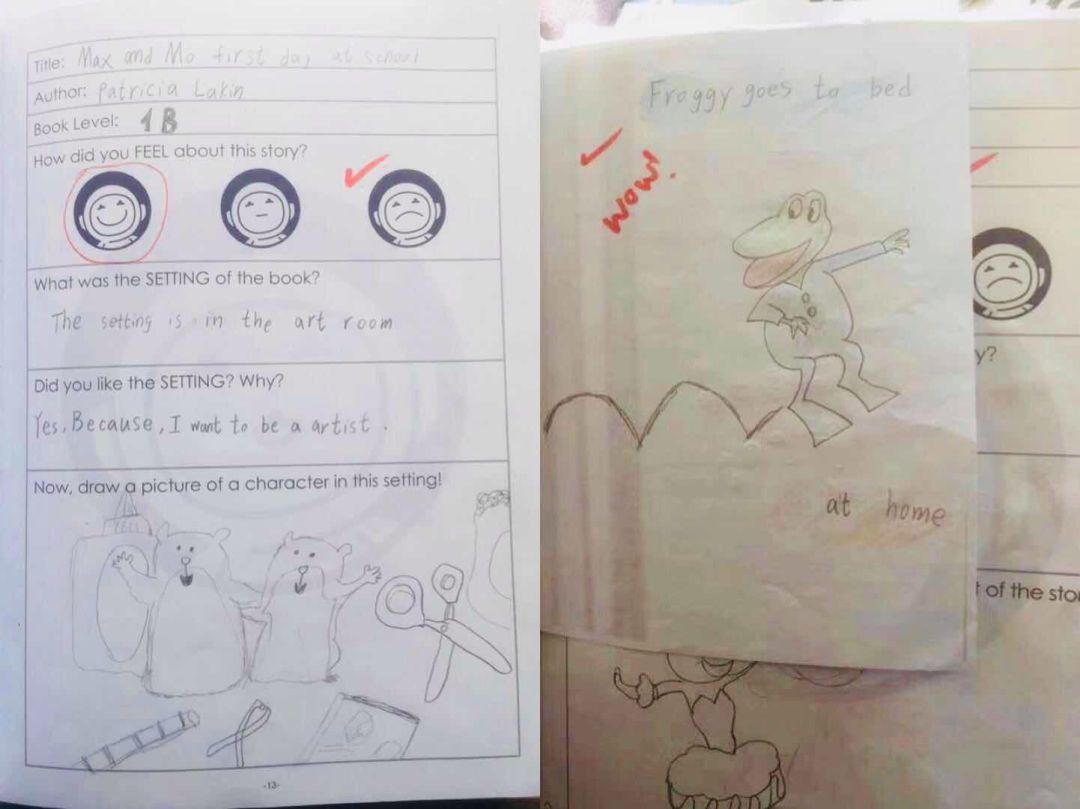 Title: Max and Mo first day at school
Author: Patricia Lakin
Book Level: 1B
How did you FEEL about this story?
What was the SETTING of the book?
The setting is in the art room
Did you like the SETTING? Why?
Yes, Because, I want to be a artist.
Now, draw a picture of a character in this setting!
-13-
Froggy goes to bed
WOW!
at home
y?
t of the sto